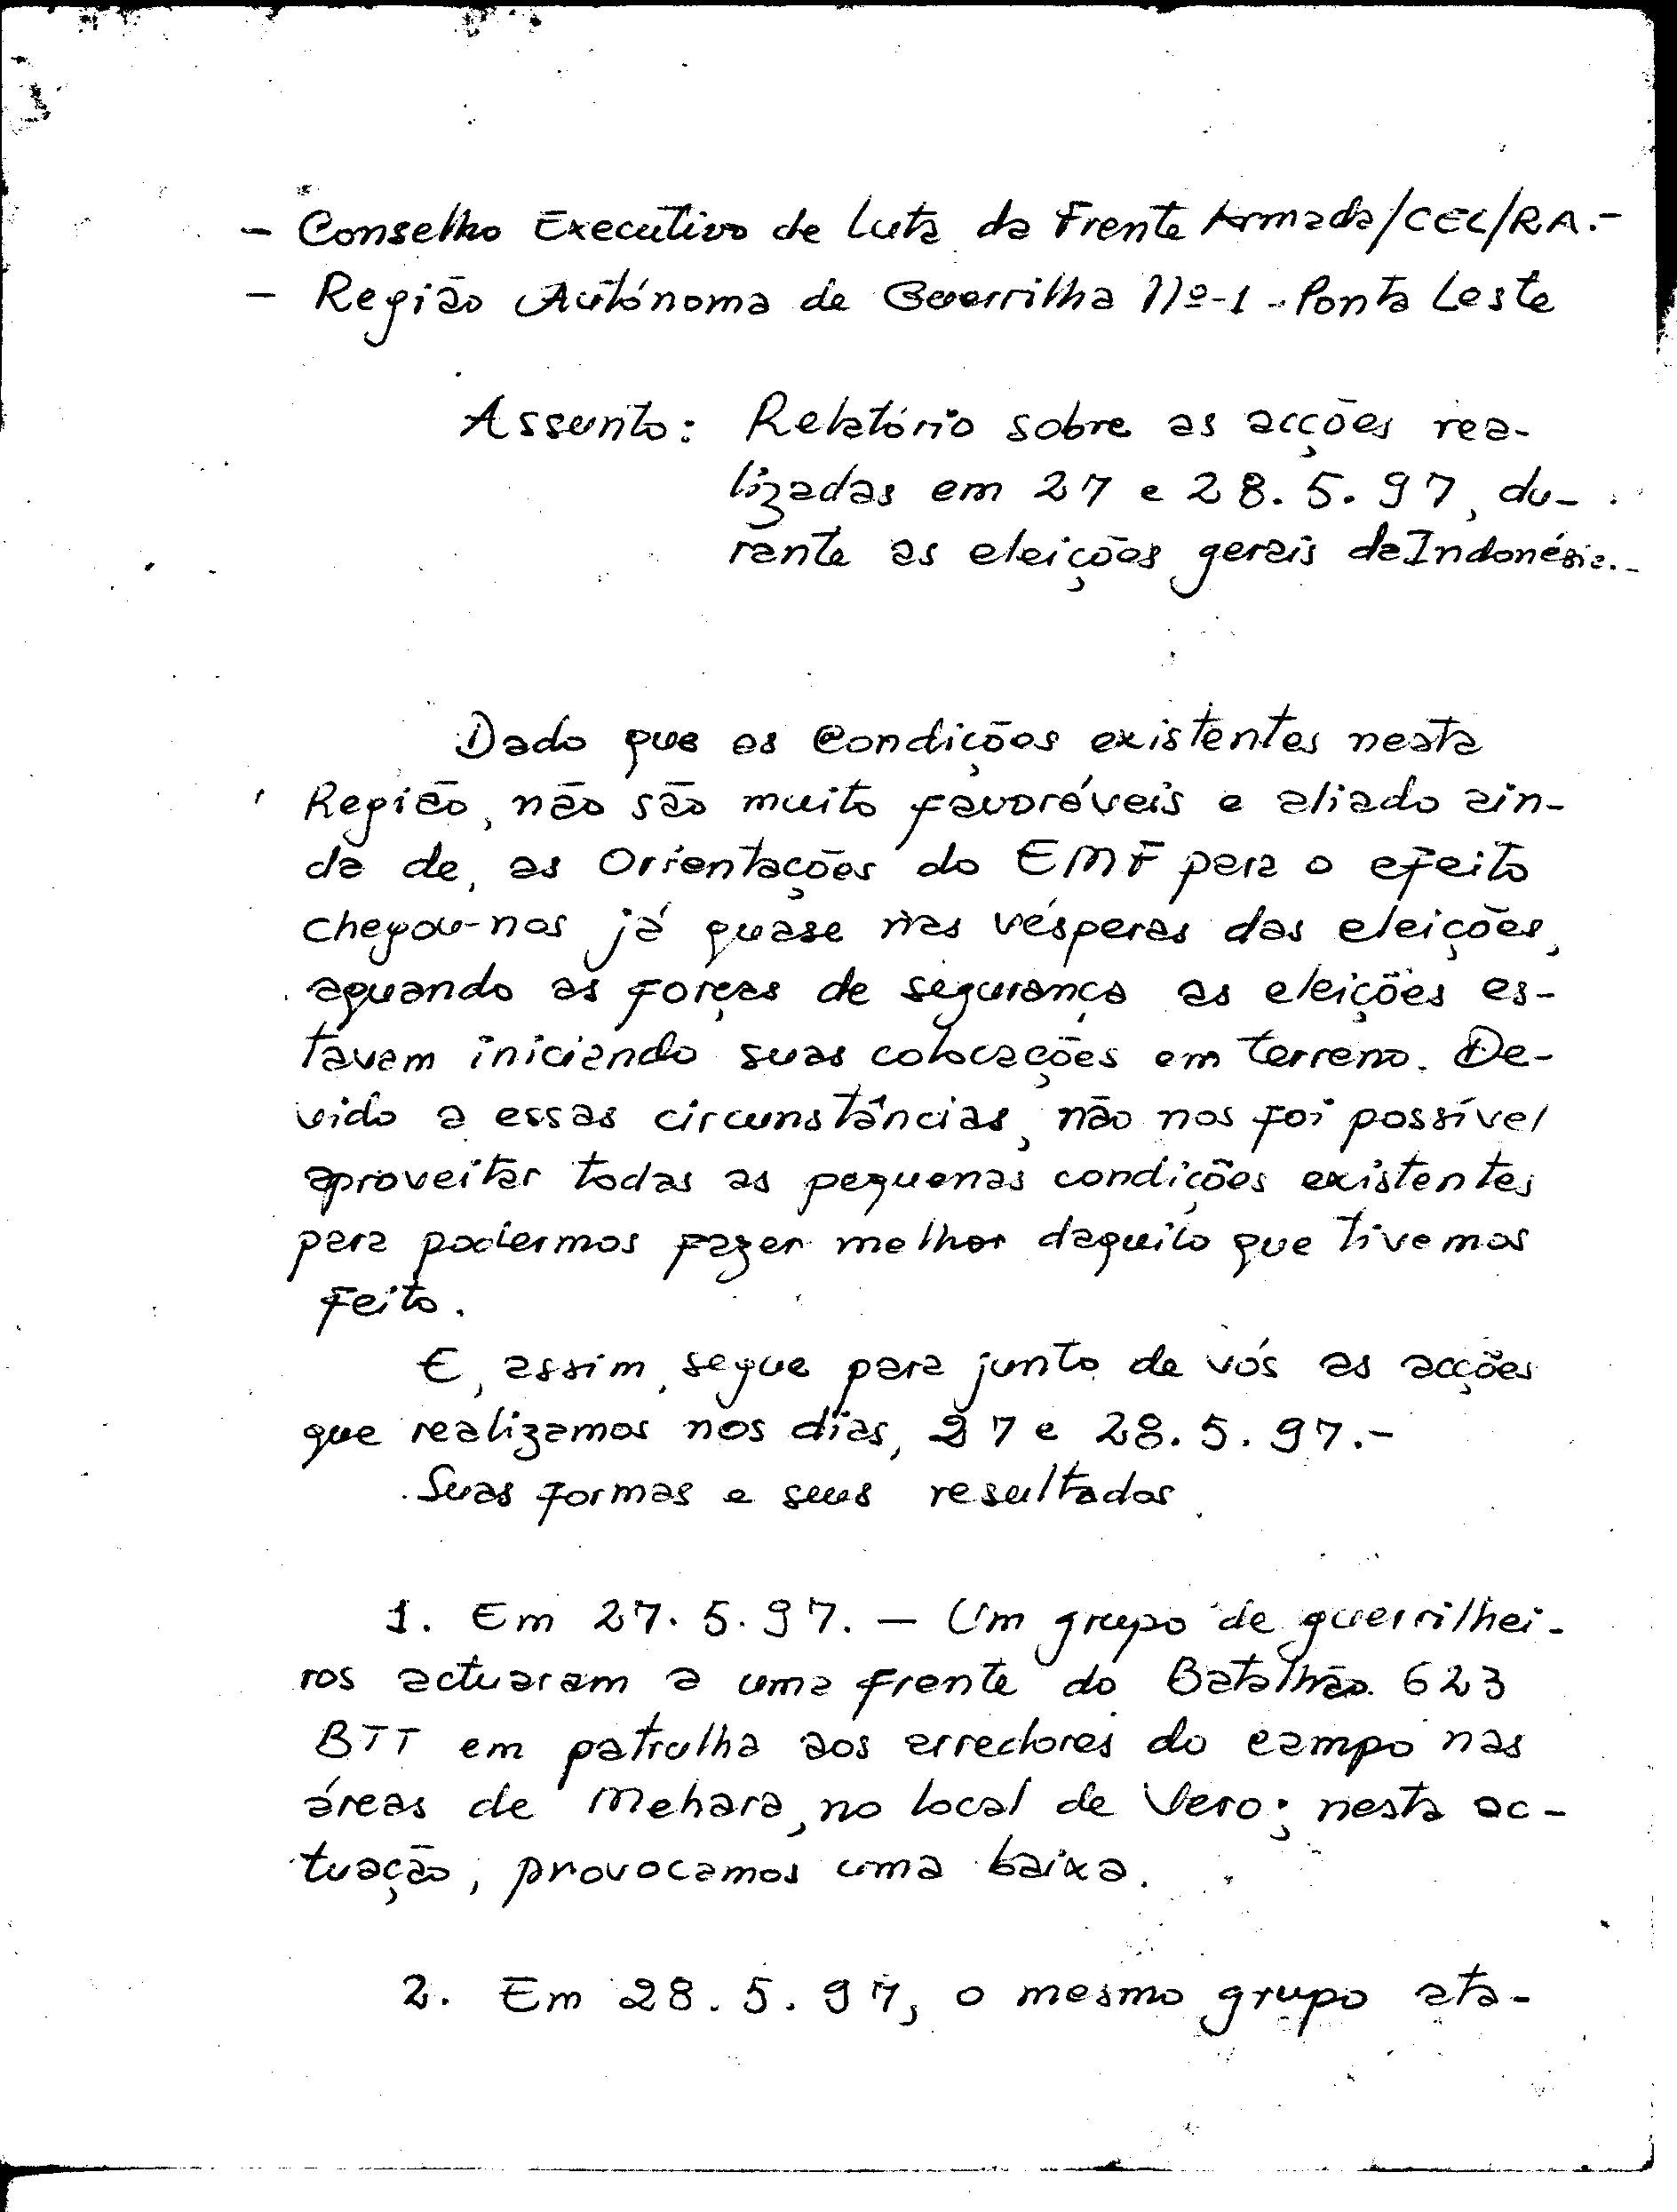 - Conselho Executivo de Luta da Frente Armada/CEL/RA.-
- Região Autónoma de Guerrilha Nº-1 - Ponta Leste
Assunto: Relatório sobre as acções rea-
lizadas em 27 e 28.5.97, du-
rante as eleições gerais da Indonésia.-
Dado que as condições existentes nesta
Região, não são muito favoráveis e aliado ain-
da de, as Orientações do EMF para o efeito
chegou-nos já quase nas vésperas das eleições,
aquando as forças de segurança as eleições es-
tavam iniciando suas colocações em terreno. De-
vido a essas circunstâncias, não nos foi possível
aproveitar todas as pequenas condições existentes
para podermos fazer melhor daquilo que tivemos
feito.
E, assim, segue para junto de vós as acções
que realizamos nos dias, 27 e 28.5.97.-
Suas formas e seus resultados.
1. Em 27.5.97. - Um grupo de guerrilhei-
ros actuaram a uma frente do Batalhão 623
BTT em patrulha aos arredores do campo nas
áreas de Mehara, no local de Vero; nesta ac-
tuação, provocamos uma baixa.
2. Em 28.5.97, o mesmo grupo ata-